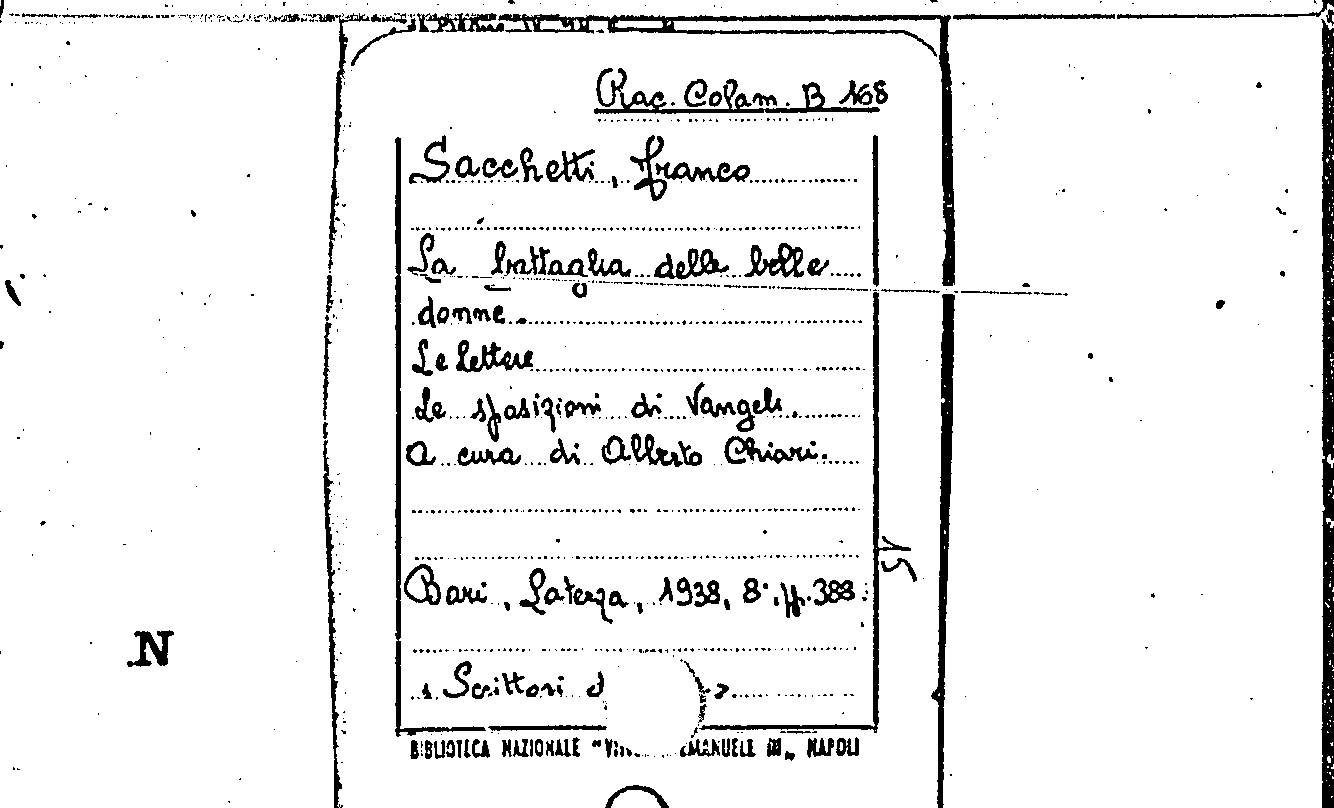 Rac. Colam. B 168
Sacchetti, Franco
La battaglia delle belle
donne.
Le lettere
Le sposizioni di Vangeli.
A cura di Alberto Chiari.
Bari, Laterza, 1938, 8°, pp. 388.
15
N
Scrittori d
BIBLIOTECA NAZIONALE "VITT EMANUELE III„ NAPOLI